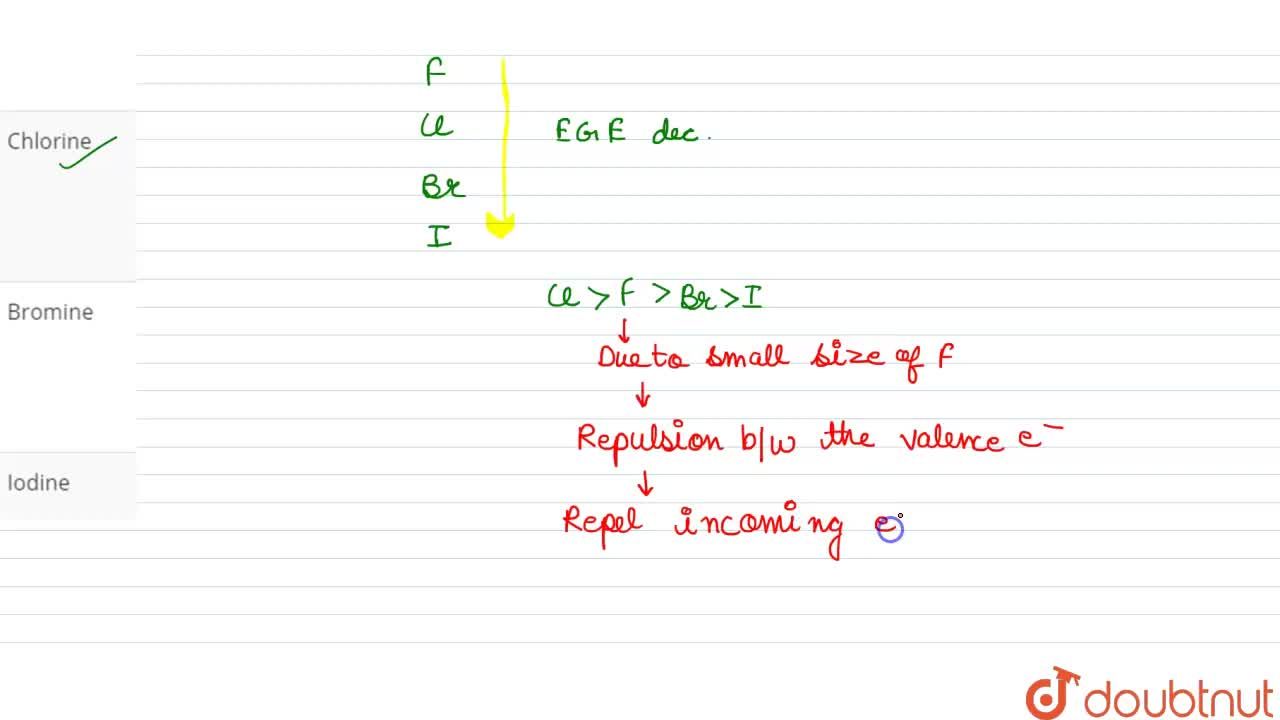 F
Cl
EGE dec.
Chlorine
Br
I
Cl > F > Br > I
Bromine
Due to small size of F
Repulsion b/w the valence e⁻
Iodine
Repel incoming e
doubtnut